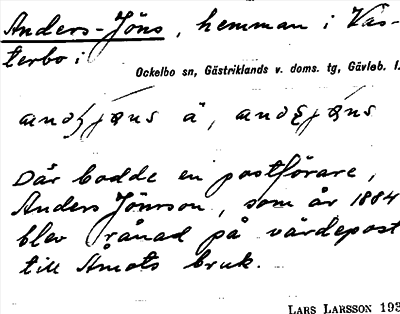 Anders-Jöns, hemman i Väs-
terbo i
Ockelbo sn, Gästriklands v. doms. tg, Gävleb. l.
à,
Där bodde en postförare,
Anders Jönsson, som år 1884
blev rånad på värdepost
till Åmots bruk.
LARS LARSSON 193